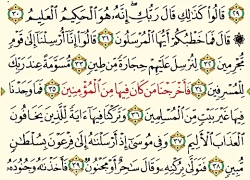 ٢٩ قَالُوا كَذَٰلِكِ قَالَ رَبُّكِ إِنَّهُ هُوَ الْحَكِيمُ الْعَلِيمُ ٣٠
قَالَ فَمَا خَطْبُكُمْ أَيُّهَا الْمُرْسَلُونَ ٣١ قَالُوا إِنَّا أُرْسِلْنَا إِلَىٰ قَوْمٍ
مُجْرِمِينَ ٣٢ لِنُرْسِلَ عَلَيْهِمْ حِجَارَةً مِنْ طِينٍ ٣٣ مُسَوَّمَةً عِنْدَ رَبِّكَ
لِلْمُسْرِفِينَ ٣٤ فَأَخْرَجْنَا مَنْ كَانَ فِيهَا مِنَ الْمُؤْمِنِينَ ٣٥ فَمَا وَجَدْنَا
فِيهَا غَيْرَ بَيْتٍ مِنَ الْمُسْلِمِينَ ٣٦ وَتَرَكْنَا فِيهَا آيَةً لِلَّذِينَ يَخَافُونَ
الْعَذَابَ الْأَلِيمَ ٣٧ وَفِي مُوسَىٰ إِذْ أَرْسَلْنَاهُ إِلَىٰ فِرْعَوْنَ بِسُلْطَانٍ
مُبِينٍ ٣٨ فَتَوَلَّىٰ بِرُكْنِهِ وَقَالَ سَاحِرٌ أَوْ مَجْنُونٌ ٣٩ فَأَخَذْنَاهُ وَجُنُودَهُ